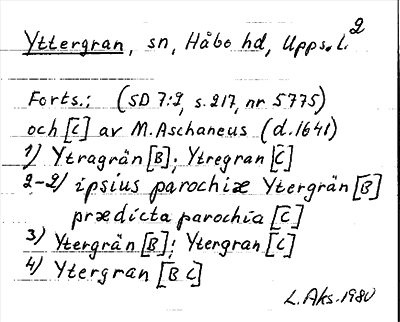 Yttergran, sn, Håbo hd, Upps.l. 2
Forts.: (SD 7:2, s. 217, nr 5775)
och [C] av M. Aschaneus (d. 1641)
1) Ytragrän [B]; Ytregran [C]
2-2) ipsius parochiæ Ytergrän [B]
prædicta parochia [C]
3) Ytergrän [B]; Ytergran [C]
4) Ytergran [B C]
L. Aks. 1980